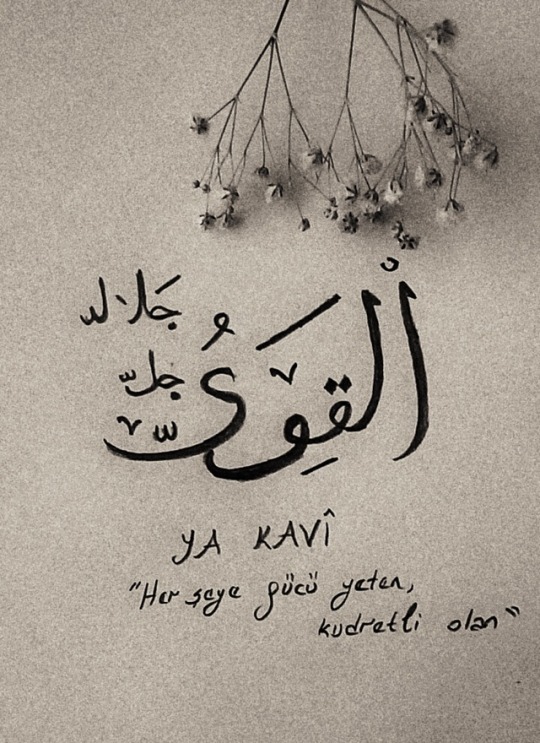 جَلاله
اَلْقَوِىُّ
جلّ
YA KAVÎ
"Her şeye gücü yeten,
kudretli olan"